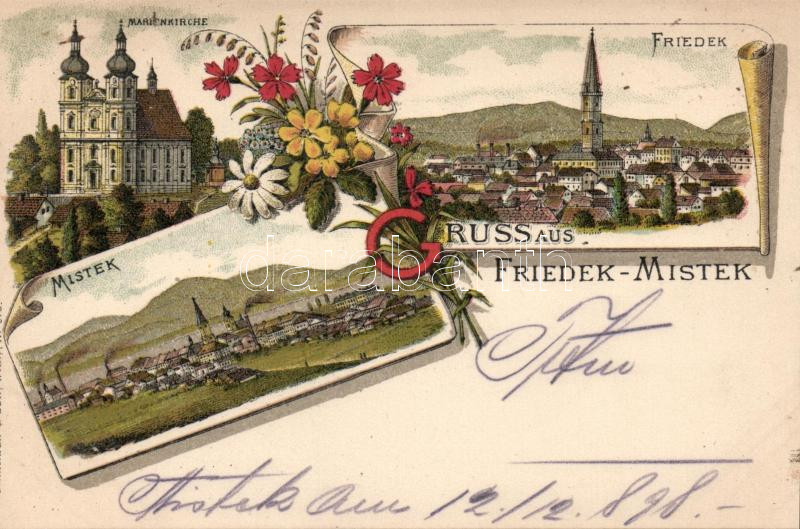 MARIENKIRCHE
FRIEDEK
GRUSS AUS
FRIEDEK-MISTEK
MISTEK
darabanth
Mistek am 12./12. 898.-